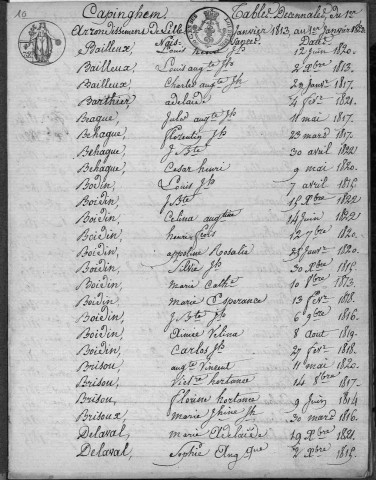 16 Capinghem Tables Décennales, du 1er
Arrondissement De Lille Janvier 1813, au 1er Janvier 1823
Nces Dates
Bailleux, Louis 12 juin 1820.
Bailleux, Louis augte Jh 2 Xbre 1813.
Bailleux, Charles augte Jh 29 janvr 1817.
Barthier, adelaide 4 févr 1821.
Beague, Jules augte Jh 11 mai 1817.
Behague, florentin Jh 23 mars 1817.
Behague, J Bte 30 avril 1822.
Behague, Cesar henri 9 mai 1820.
Boidin, Louis Jh 7 avril 1815.
Boidin, J Bte 12 Xbre 1822
Boidin, Celina augtine 14 Juin 1822
Boidin, henri fois 12 7bre 1820.
Boidin, appoline Rosalie 25 Janvr 1820.
Boidin, Silvie Jh 30 Xbre 1815.
Boidin, marie Cathe 10 8bre 1813.
Boidin, marie Esperance 13 févr 1818.
Boidin, J Bte Jh 6 9bre 1816.
Boidin, Aimée Velina 8 aout 1819.
Boidin, Carlos Jh 27 févr 1818.
Brisou, augte Vincent 11 mai 1820.
Brisou, Virte hortance 14 8bre 1817.
Brisou, florine hortance 9 Juin 1814
Brisoux, marie Jhine Jh 30 mars 1816.
Delaval, marie Adelaïde 19 Xbre 1821.
Delaval, Sophie Aug que 2 Xbre 1815.